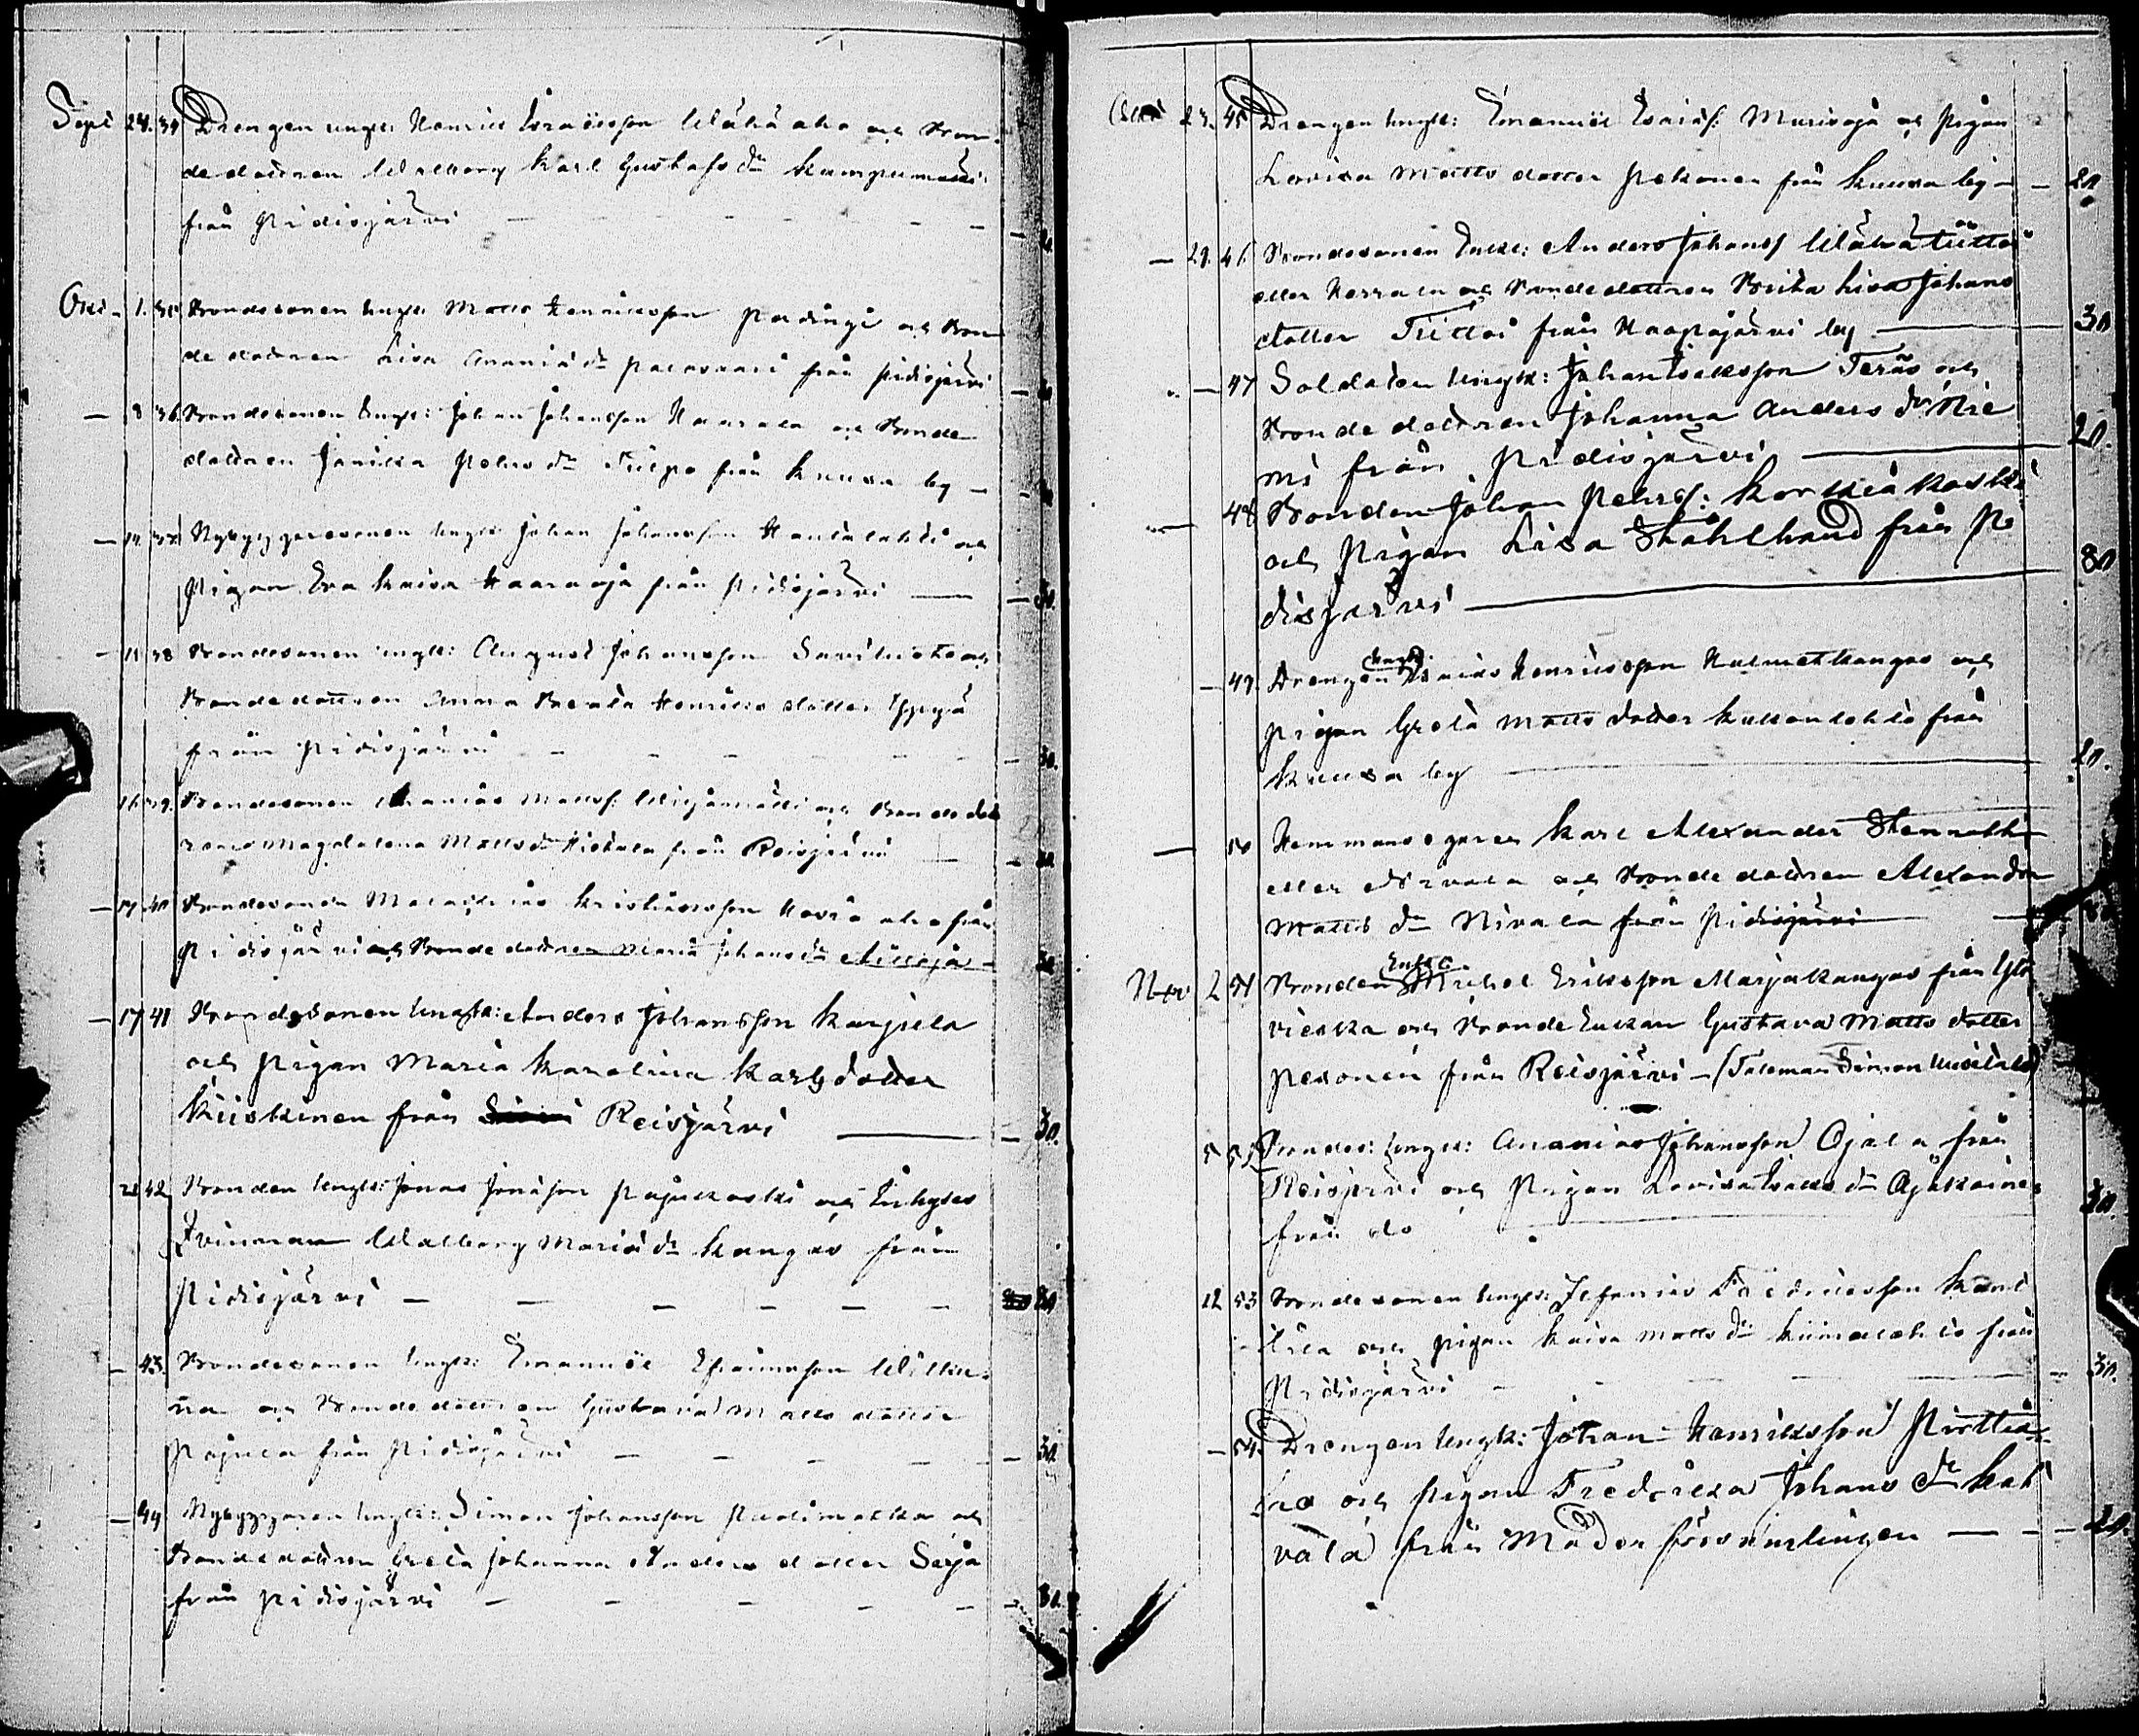 Sept 24. 34 Drengen ungk: Henrik Israelsson Wähä aho och Bon-
dedottren Walborg Karl Gustafs dr Kumpumäki
från Pidisjärvi — — — —
Oct. 1. 35 Bondesonen ungk: Matts Henriksson Padingi och Bon
dedottren Lisa Ananiæ dr från Pidisjärvi —
— 8 36 Bondesonen Ungk: Johan Johansson Haarala och Bonde
dottren Pehrs dr från Kuusa by —
— 14. 37 Nybyggaresonen ungk: Johan Johansson Hautalahti och
Pigan Eva Kaisa Haaraoja från Pidisjärvi — — 30.
— 15 38 Bondesonen ungk: August Johansson och
Bondedottren Anna Henriks dotter Yppyä
från Pidisjärvi — — — — — 30.
16. 39. Bondesonen Ananias Mattss: och Bondedott
ren Magdalena Matts dr Hiekala från Reisjärvi —
— 17 40 Bondesonen Malachias Kristiansson aho från
Pidisjärvi och Bondedottren Maria Johans dr Ainasoja — 30
— 17 41 Bondesonen Ungk: Anders Johansson Karjula
och Pigan Maria Karolina Karls dotter
Kiiskinen från Reisjärvi — — 30.
22 42 Bonden Ungk: Jonas Jonasson Pajukoski och Inhyses
Qvinnan Walborg Mariæ dr Kangas från
Pidisjärvi — — — — — — 20
— 43. Bondesonen Ungk: Emanuel Efraimsson Wilku-
na och Bondedottren Gustava Matts dotter
Pajula från Pidisjärvi — — — — — 30.
— 44 Nybyggaren Ungk: Simon Johansson Padinmatka och
Bondedottren Greta Johanna Anders dotter Sarja
från Pidisjärvi — — — — — — 30.
Oct 23. 45 Drengen Ungk: Emanuel Esaiæs: Murisoja och Pigan
Lovisa Matts dotter Pekonen från Kuusa by — — 20
— 29. 46 Bondesonen Enkl: Anders Johanss Wähätiitto
eller Herrala och Bondedottren Brita Lisa Johans
dotter Tiitto från Haapajärvi by — 30
— 47 Soldaten Ungk: Johan Isaksson Teräs och
Bondedottren Johanna Anders dr Nie
mi från Pidisjärvi — 20.
— 48 Bonden Johan Pehrss: Korkiakoski
och Pigan Lisa Stählhand från Pi
disjärvi — 80
— 49. Drengen Ungk: Esaias Henriksson Kulmetkangas och
Pigan Greta Matts dotter från
Kuusa by — 20.
— 50 Hemmansegaren Karl Alexander Stenroth
eller Nivala och Bondedottren Alexandra
Matts dr Nivala från Pidisjärvi —
Nov 2 51 Bonden Enkl: Michel Eriksson Marjakangas från Yli
vieska och Bonde Enkan Gustava Matts dotter
Pekonen från Reisjärvi — (Taleman Simon Uusitalo)
5 52 Bondes: Ungk: Ananias Johansson Ojala från
Reisjärvi och Pigan Lovisa Isaks dr
från do — 30.
12 53 Bondesonen Ungk: Zefanias Fredriksson
och pigan Kaisa Matts dr Kiimalehto från
Pidisjärvi — — — — 30.
— 54. Drengen Ungk: Johan Henriksson
och Pigan Fredrika Johans dr Kat
vala från Moder församlingen — — — 20.